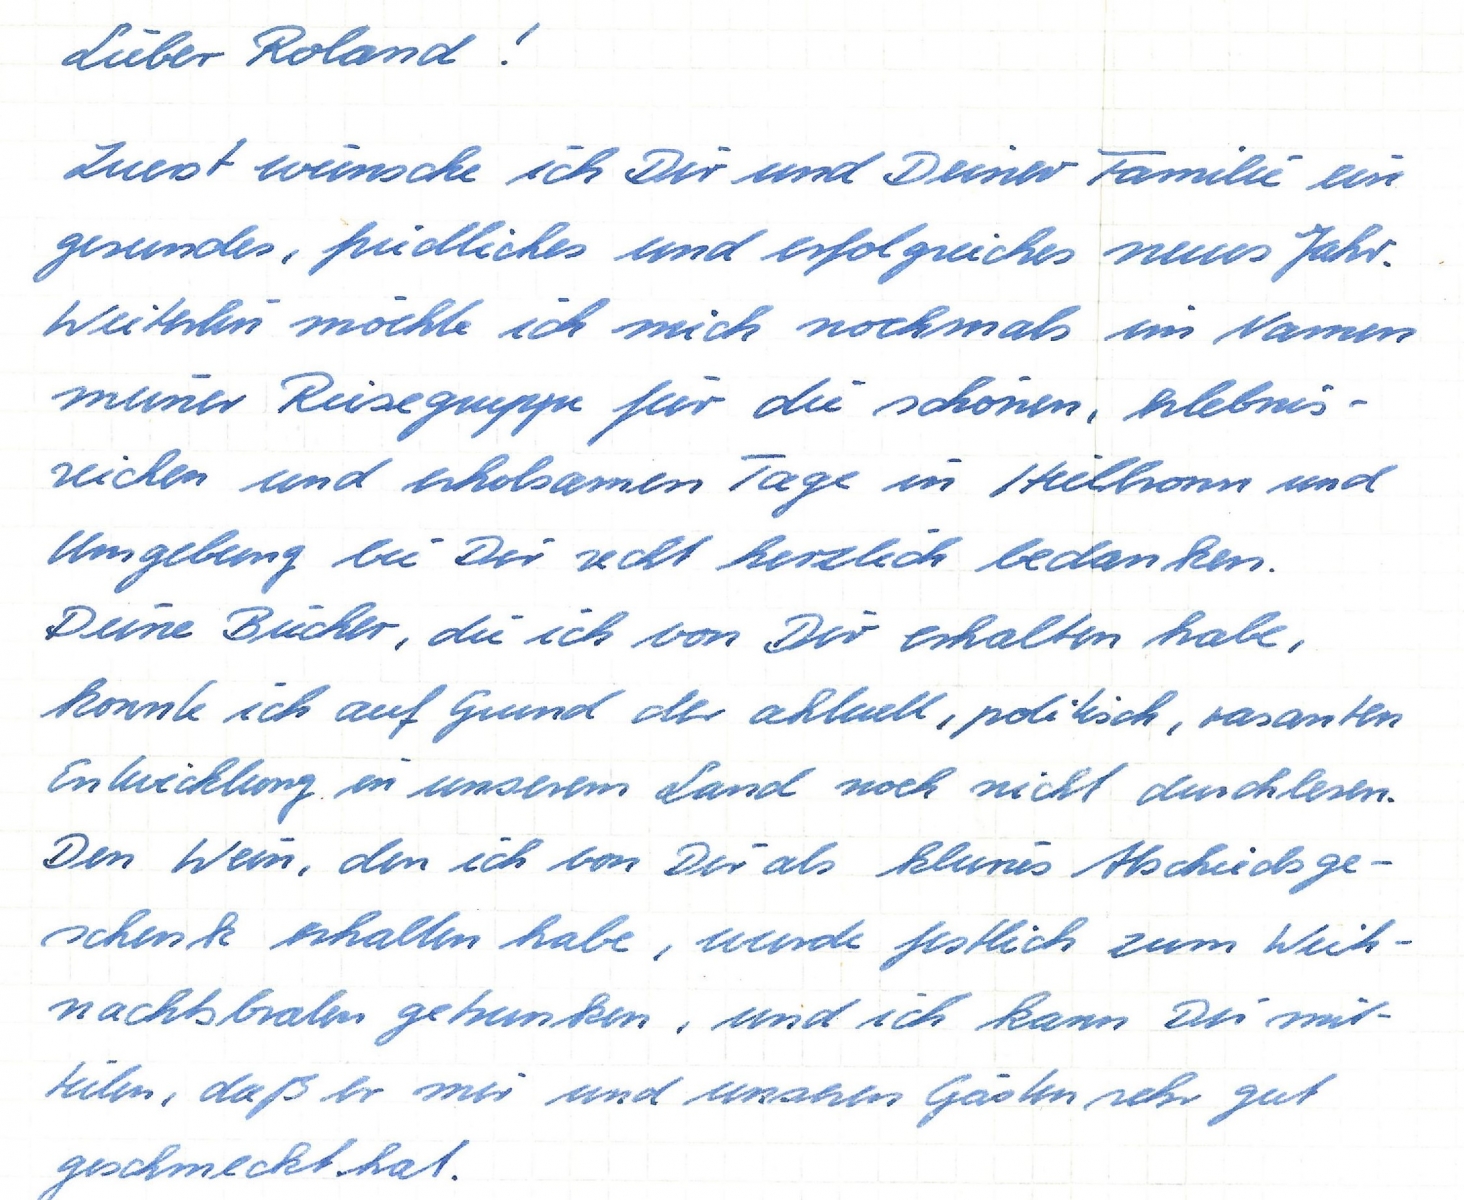 Lieber Roland !
Zuerst wünsche ich Dir und Deiner Familie ein
gesundes, friedliches und erfolgreiches neues Jahr.
Weiterhin möchte ich mich nochmals im Namen
meiner Reisegruppe für die schönen, erlebnis-
reichen und erholsamen Tage in Heilbronn und
Umgebung bei Dir recht herzlich bedanken.
Deine Bücher, die ich von Dir erhalten habe,
konnte ich auf Grund der aktuell, politisch, rasanten
Entwicklung in unserem Land noch nicht durchlesen.
Den Wein, den ich von Dir als kleines Abschiedsge-
schenk erhalten habe, wurde festlich zum Weih-
nachtsbraten getrunken, und ich kann Dir mit-
teilen, daß er mir und unseren Gästen sehr gut
geschmeckt hat.